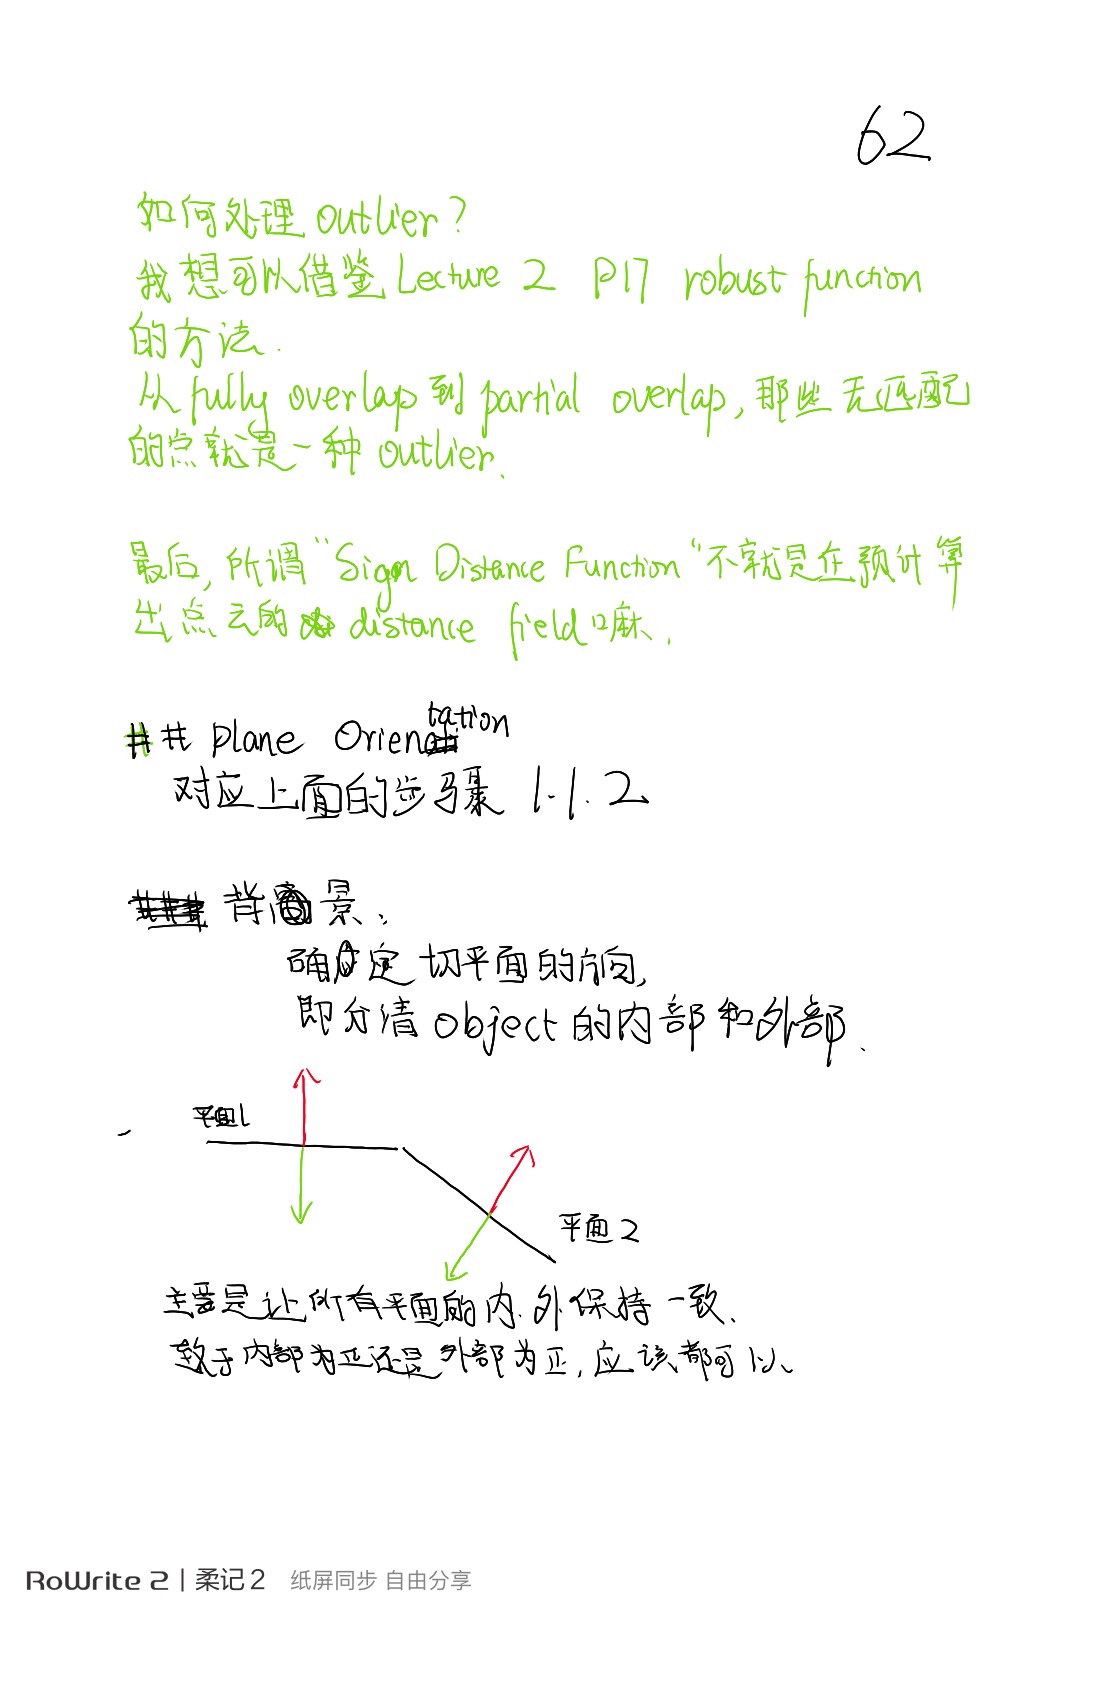 62
如何处理 outlier？
我想可以借鉴 Lecture 2 P17 robust function
的方法.
从 fully overlap 到 partial overlap, 那些无匹配
的点就是一种 outlier.
最后, 所谓“Sign Distance Function“不就是在预计算
出点云的 distance field 口麻.
## Plane Orientation
对应上面的步骤 1.1.2
背景、
确定切平面的方向,
即分清 object 的内部和外部.
平面1
平面2
主要是让所有平面的内.外保持一致、
致于内部为正还是外部为正, 应该都可以、
RoWrite 2 | 柔记 2 纸屏同步 自由分享